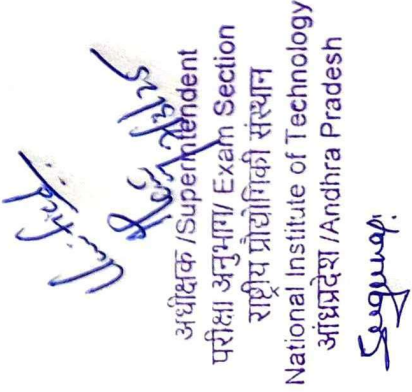 Verified
अधीक्षक /Superintendent
परीक्षा अनुभाग/ Exam Section
राष्ट्रीय प्रौद्योगिकी संस्थान
National Institute of Technology
आंध्रप्रदेश /Andhra Pradesh